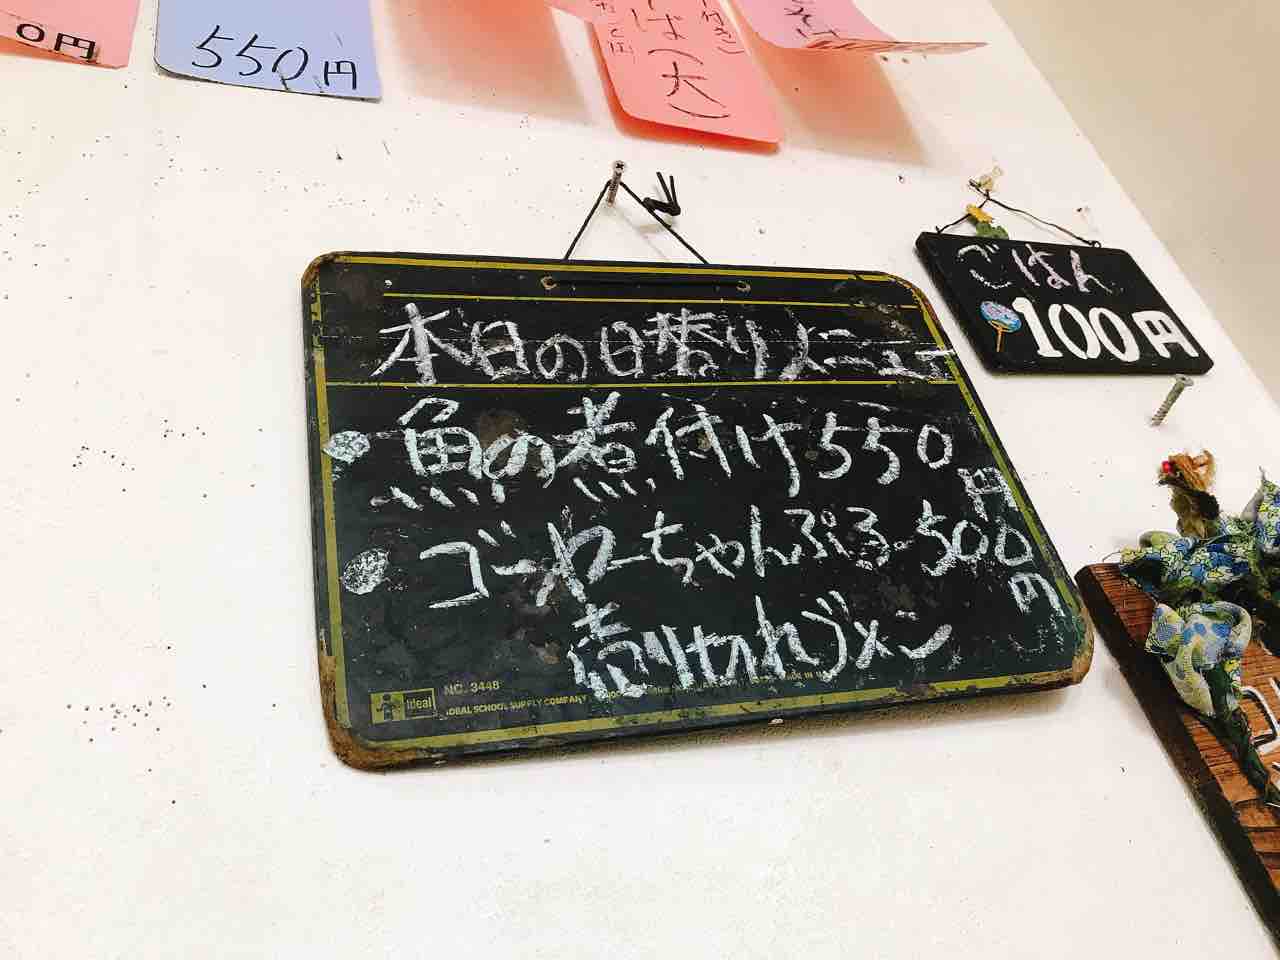 0円
550円
ば(大)
ごはん
100円
本日の日替りメニュー
魚の煮付け550円
ゴーヤーちゃんぷる-500円
売り切れゴメン
Ideal
NO. 3448
IDEAL SCHOOL SUPPLY COMPANY